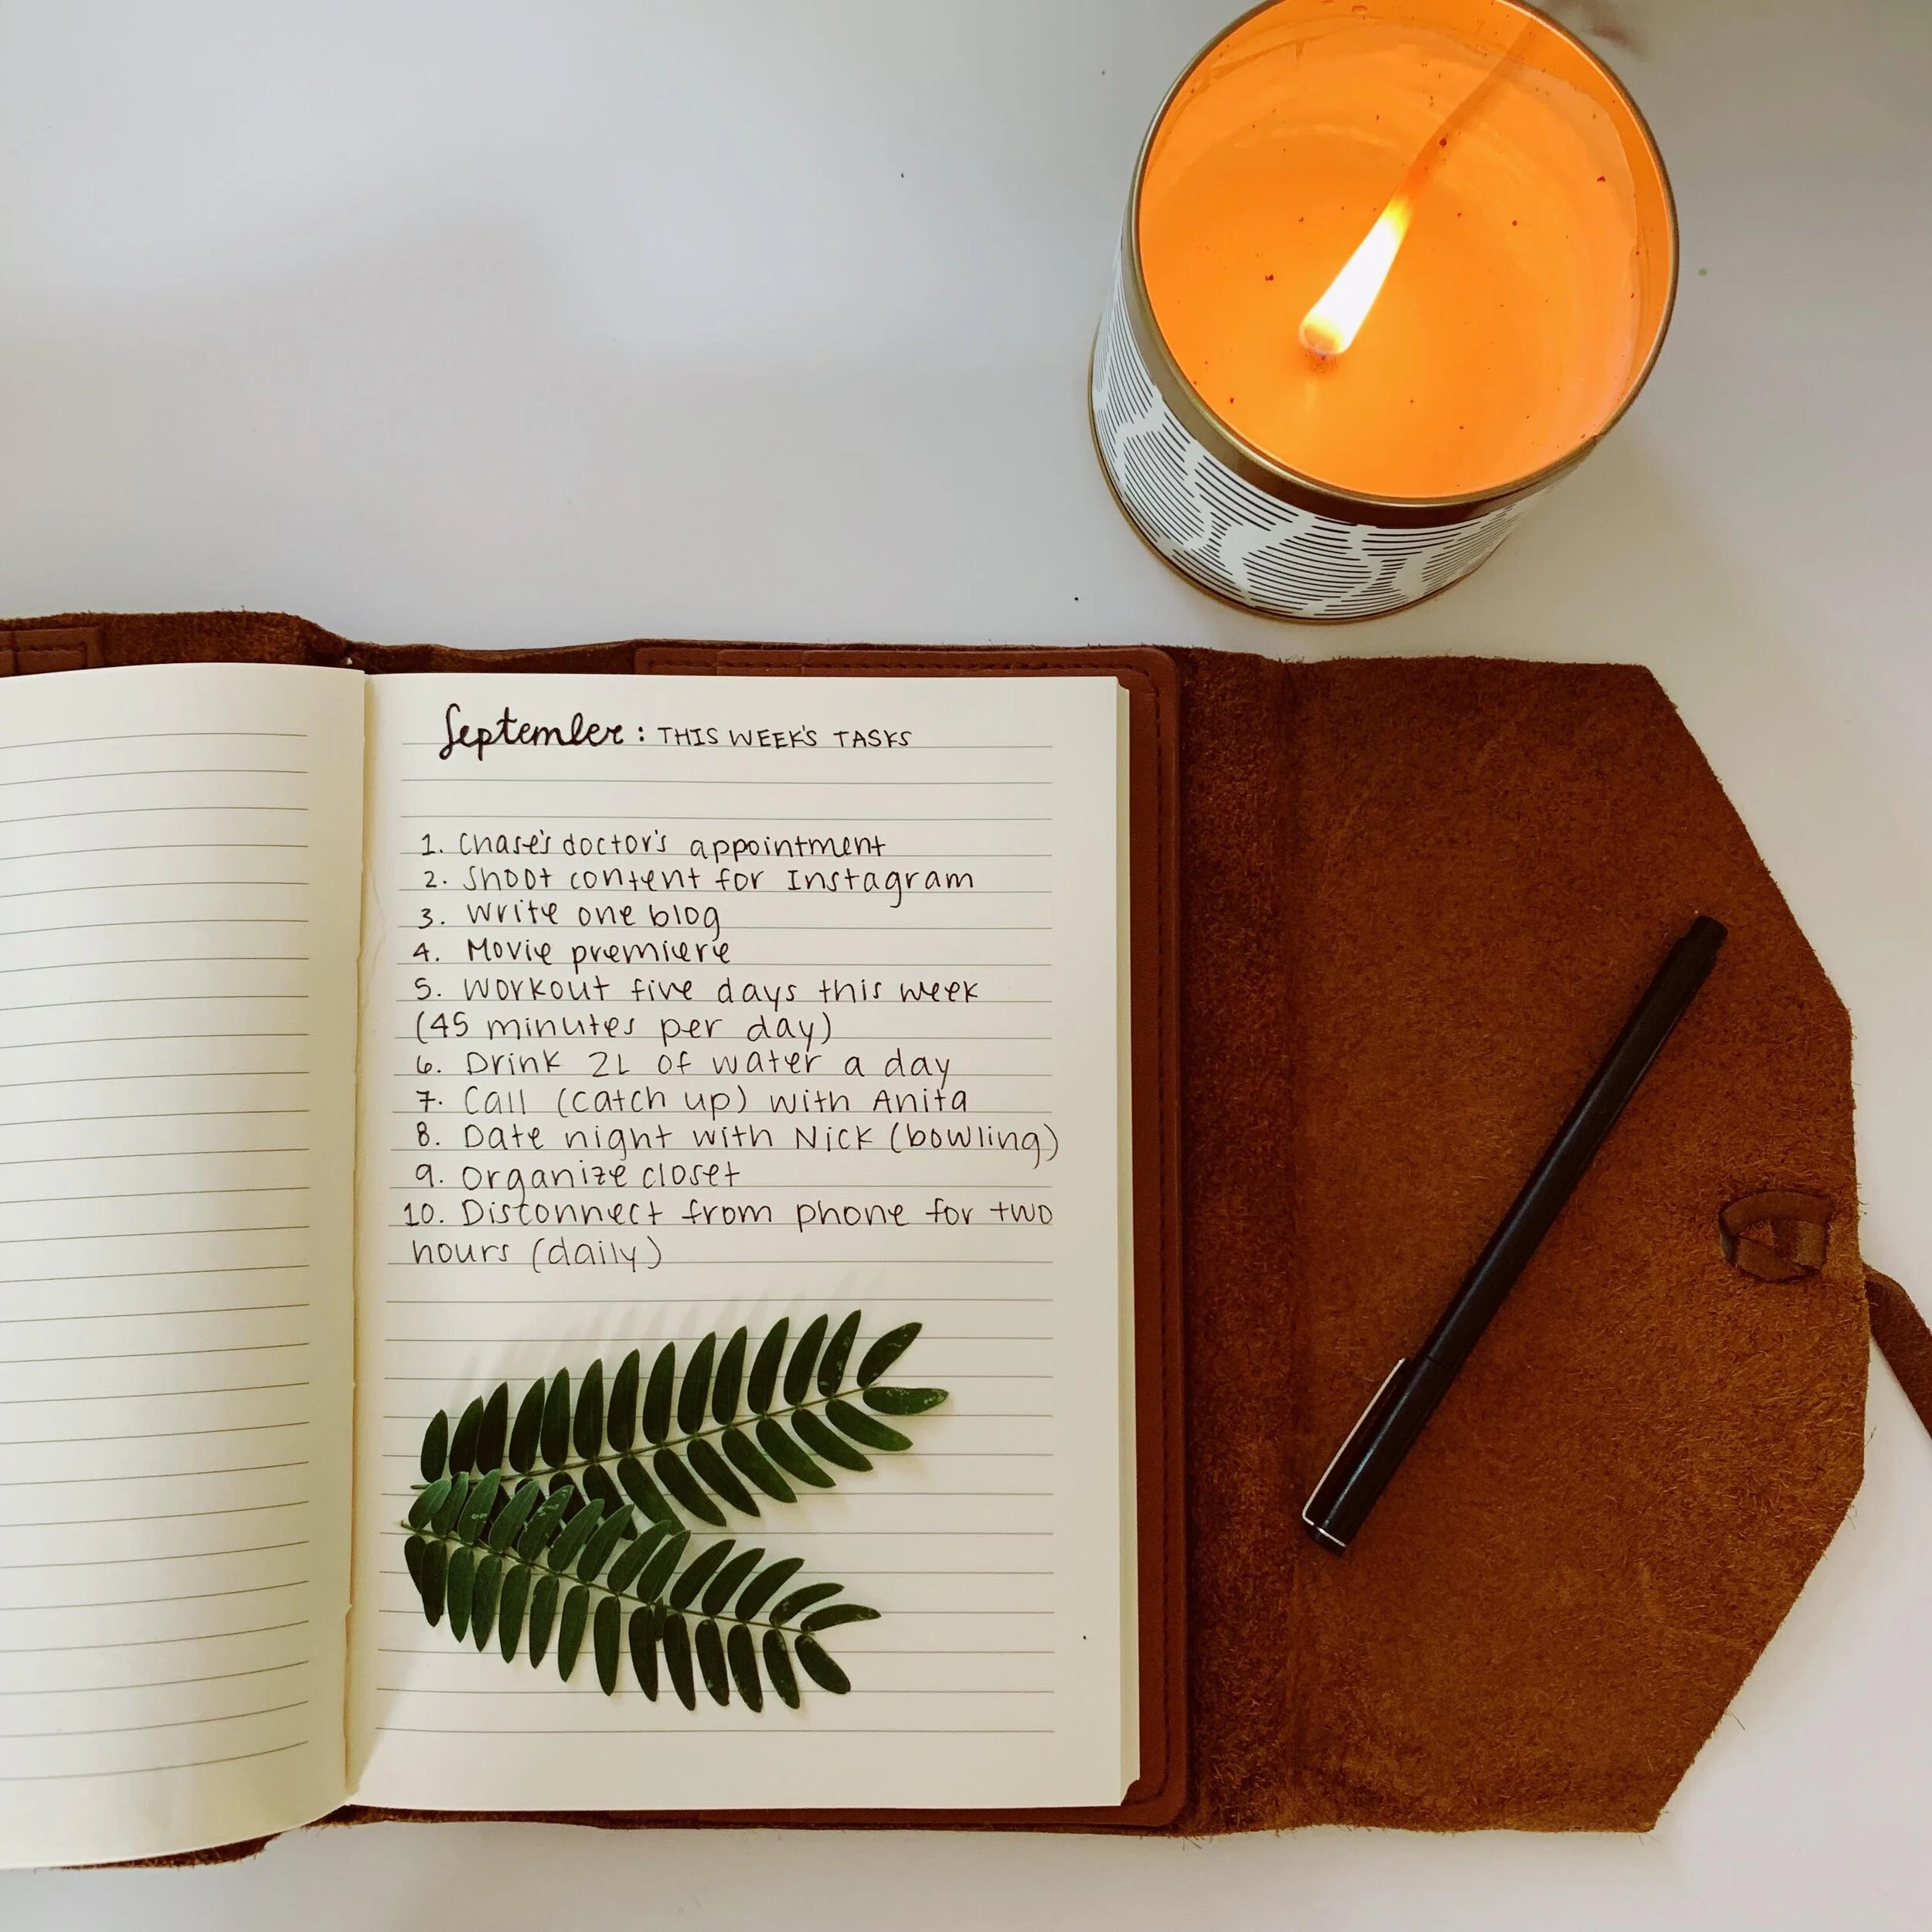 September: THIS WEEK'S TASKS
1. Chase's doctor's appointment
2. Shoot content for Instagram
3. Write one blog
4. Movie premiere
5. Workout five days this week
(45 minutes per day)
6. Drink 2L of water a day
7. Call (catch up) with Anita
8. Date night with Nick (bowling)
9. Organize closet
10. Disconnect from phone for two
hours (daily)